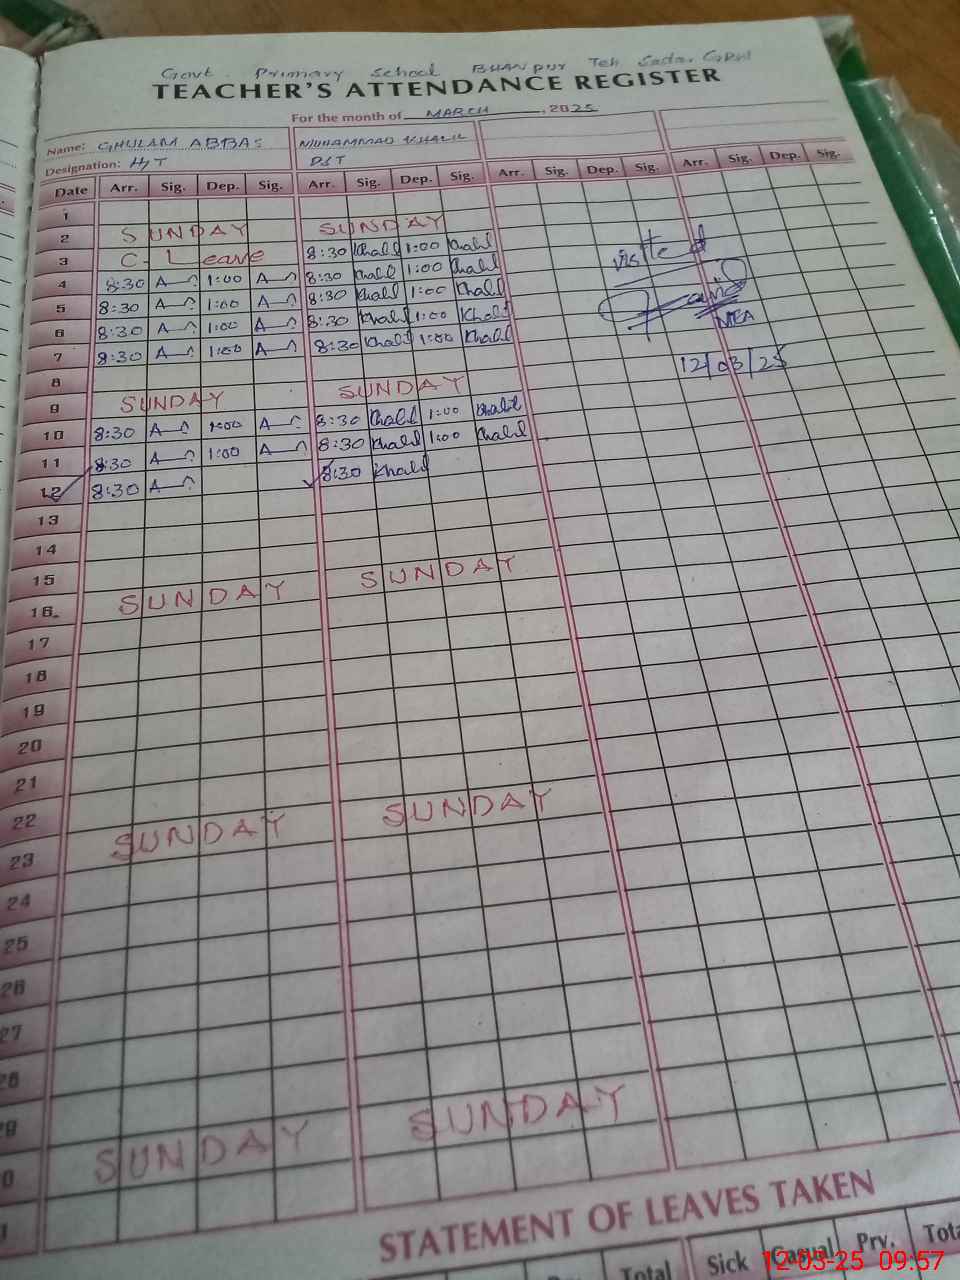 Govt. Primary School BHANPUR Teh Sadar
TEACHER'S ATTENDANCE REGISTER
For the month of MARCH, 2025
Name: GHULAM ABBAS MUHAMMAD KHALIL
Designation: H/T PST
Date Arr. Sig. Dep. Sig. Arr. Sig. Dep. Sig. Arr. Sig. Dep. Sig. Arr. Sig. Dep. Sig.
1
2 SUNDAY SUNDAY
3 C- Leave 8:30 Khalil 1:00 Khalil
4 8:30 A 1:00 A 8:30 Khalil 1:00 Khalil
5 8:30 A 1:00 A 8:30 Khalil 1:00 Khalil
6 8:30 A 1:00 A 8:30 Khalil 1:00 Khalil
7 8:30 A 1:00 A 8:30 Khalil 1:00 Khalil
visited
MEA
12/03/25
8
9 SUNDAY SUNDAY
10 8:30 A 1:00 A 8:30 Khalil 1:00 Khalil
11 8:30 A 1:00 A 8:30 Khalil 1:00 Khalil
12 8:30 A 8:30 Khalil
13
14
15
16 SUNDAY SUNDAY
17
18
19
20
21
22
23 SUNDAY SUNDAY
24
25
26
27
28
29
0 SUNDAY SUNDAY
1
STATEMENT OF LEAVES TAKEN
Total Sick Casual Prv. Tota
12-03-25 09:57